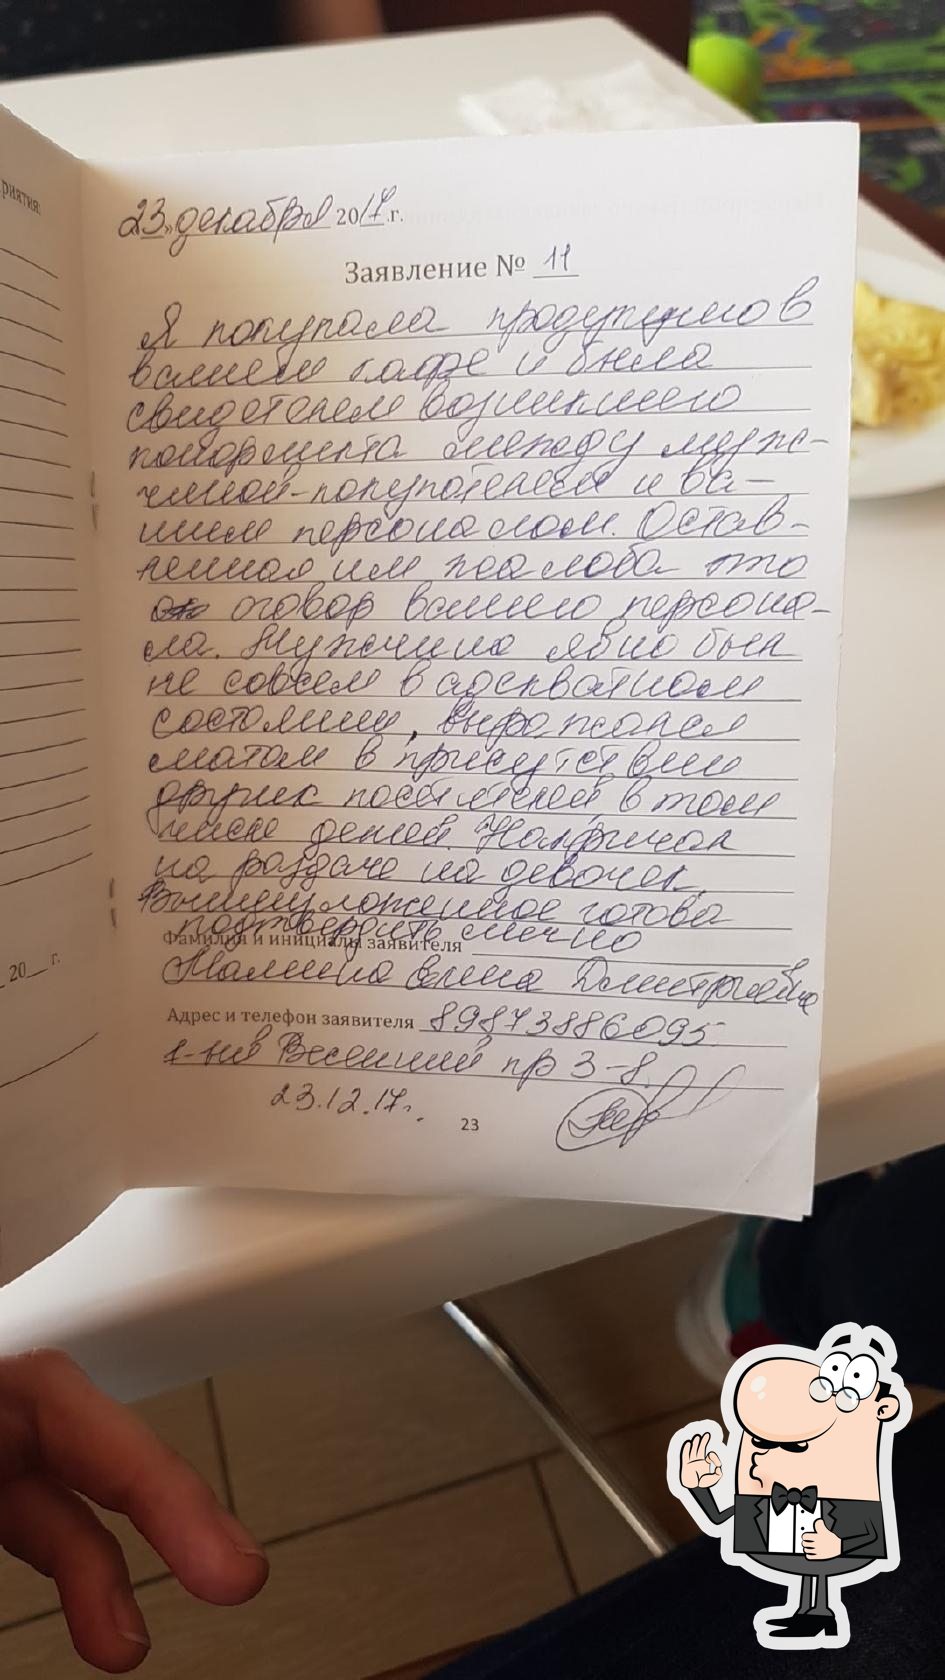 риятия:
20__ г.
«23» декабря 2017.г.
Заявление № 11
Я покупала продукцию в
вашем кафе и была
свидетелем возникшего
конфликта между муж-
чиной-покупателем и ва-
шим персоналом. Остав-
ленная им жалоба это
оговор вашего персона-
ла. Мужчина явно был
не совсем в адекватном
состоянии, выражался
матом в присутствии
других посетителей, в том
числе детей. Накричал
на раздаче на девочек.
Вышеизложенное готова
подтвердить лично
Фамилия и инициалы заявителя
Малинина Елена Дмитриевна
Адрес и телефон заявителя 89873886095
Весенний пр 3-8.
23.12.17г.
23